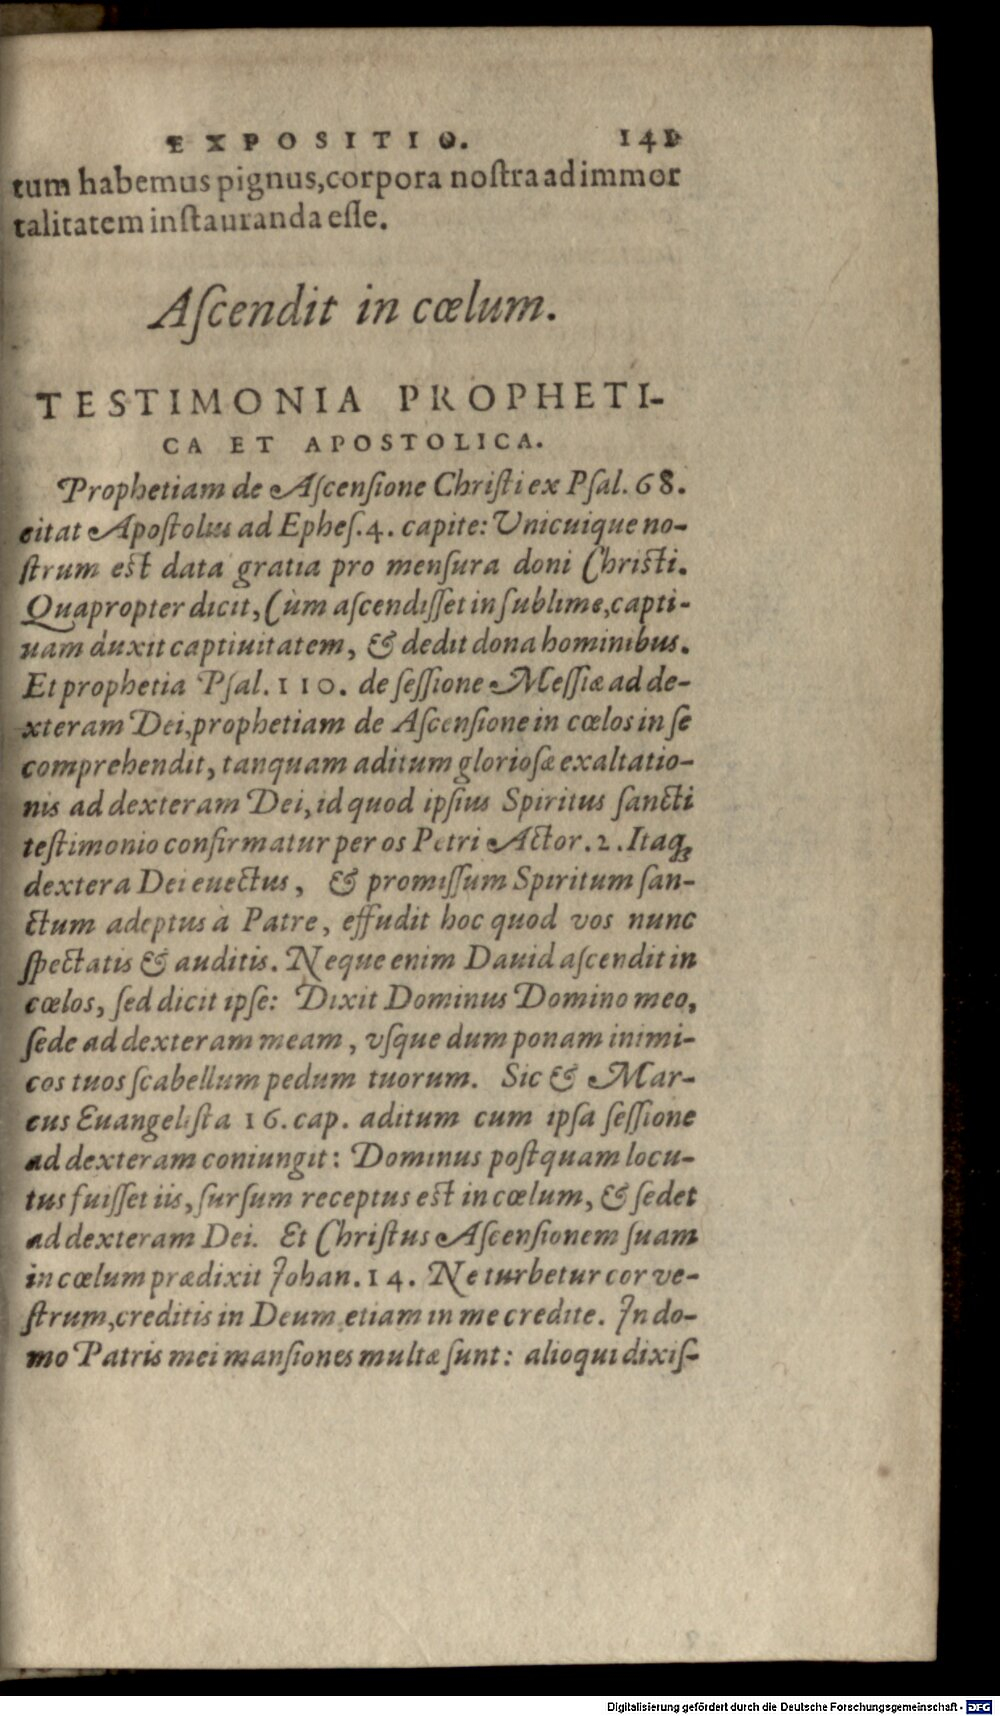 EXPOSITIO. 141
tum habemus pignus,corpora noſtra ad immor
talitatem inſtauranda eſſe.
Aſcendit in cœlum.
TESTIMONIA PROPHETI-
CA ET APOSTOLICA.
Prophetiam de Aſcenſione Chriſti ex Pſal. 68.
citat Apoſtolus ad Epheſ.4. capite: Unicuique no-
ſtrum eſt data gratia pro menſura doni Chriſti.
Quapropter dicit, Cùm aſcendiſſet in ſublime,capti-
uam duxit captiuitatem, & dedit dona hominibus.
Et prophetia Pſal. 110. de ſeſſione Meſſiæ ad de-
xteram Dei,prophetiam de Aſcenſione in cœlos in ſe
comprehendit, tanquam aditum glorioſæ exaltatio-
nis ad dexteram Dei, id quod ipſius Spiritus ſancti
teſtimonio confirmatur per os Petri Actor. 2. Itaq;
dextera Dei euectus, & promiſſum Spiritum ſan-
ctum adeptus à Patre, effudit hoc quod vos nunc
ſpectatis & auditis. Neque enim Dauid aſcendit in
cœlos, ſed dicit ipſe: Dixit Dominus Domino meo,
ſede ad dexteram meam, vſque dum ponam inimi-
cos tuos ſcabellum pedum tuorum. Sic & Mar-
cus Euangeliſta 16. cap. aditum cum ipſa ſeſſione
ad dexteram coniungit: Dominus poſtquam locu-
tus fuiſſet iis, ſurſum receptus eſt in cœlum, & ſedet
ad dexteram Dei. Et Chriſtus Aſcenſionem ſuam
in cœlum prædixit Johan. 14. Ne turbetur cor ve-
ſtrum,creditis in Deum etiam in me credite. In do-
mo Patris mei manſiones multæ ſunt: alioqui dixiſ-
Digitalisierung gefördert durch die Deutsche Forschungsgemeinschaft - DFG